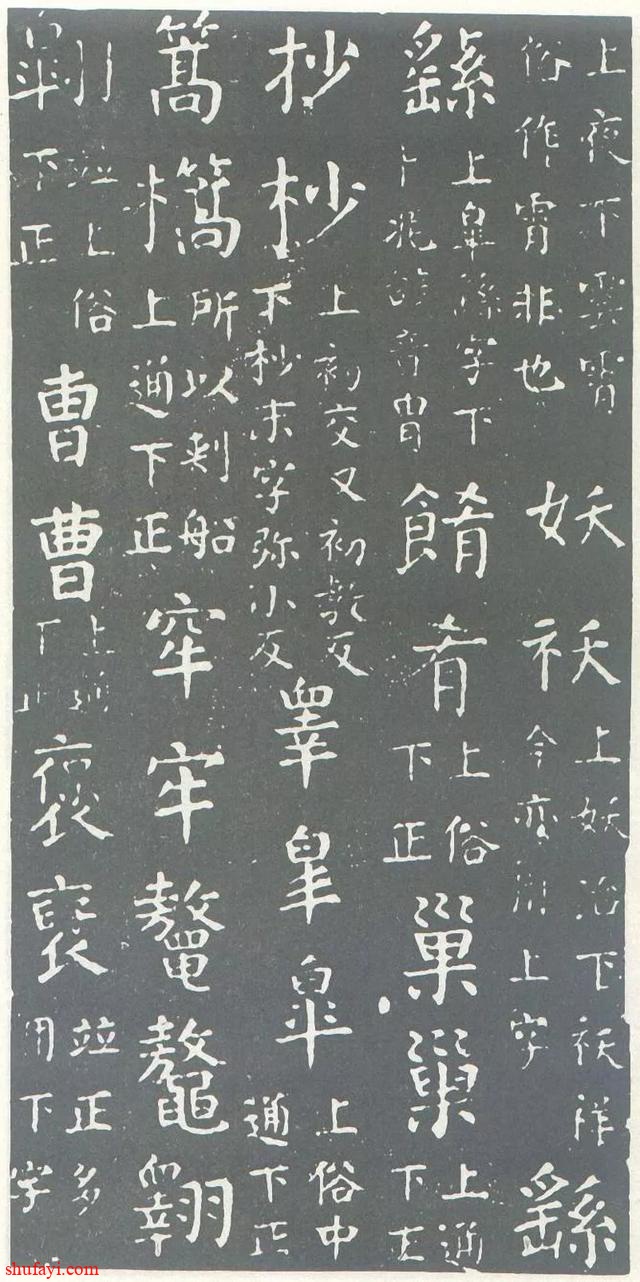 上夜下雲霄俗作霄非也妖祅上妖冶下祅祥今亦用上字繇
繇上臯繇字下卜兆辞音胄餚肴上俗下正巢巢上通下正
抄杪上初交又初教反下杪末字弥小反睾皐皐上俗中通下正
篙檇所以刾船上通下正窂牢鼇鼇翱
並上俗下正曺曹上通下正褒襃並正多用下字
shufayi.com